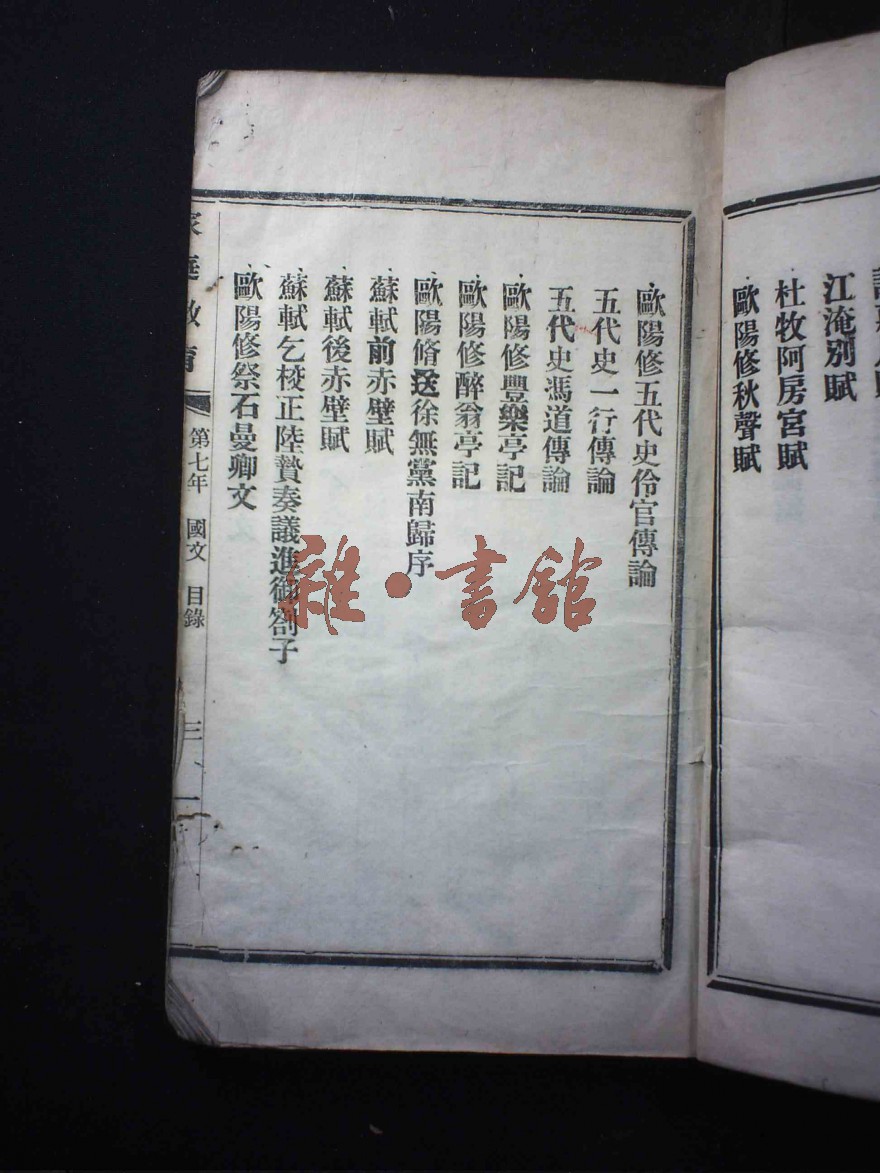 江淹別賦
杜牧阿房宮賦
歐陽修秋聲賦
歐陽修五代史伶官傳論
五代史一行傳論
五代史馮道傳論
歐陽修豐樂亭記
歐陽修醉翁亭記
歐陽脩送徐無黨南歸序
蘇軾前赤壁賦
蘇軾後赤壁賦
蘇軾乞校正陸贄奏議進御劄子
歐陽修祭石曼卿文
家庭教育 第七年 國文 目錄 三
雜·書館